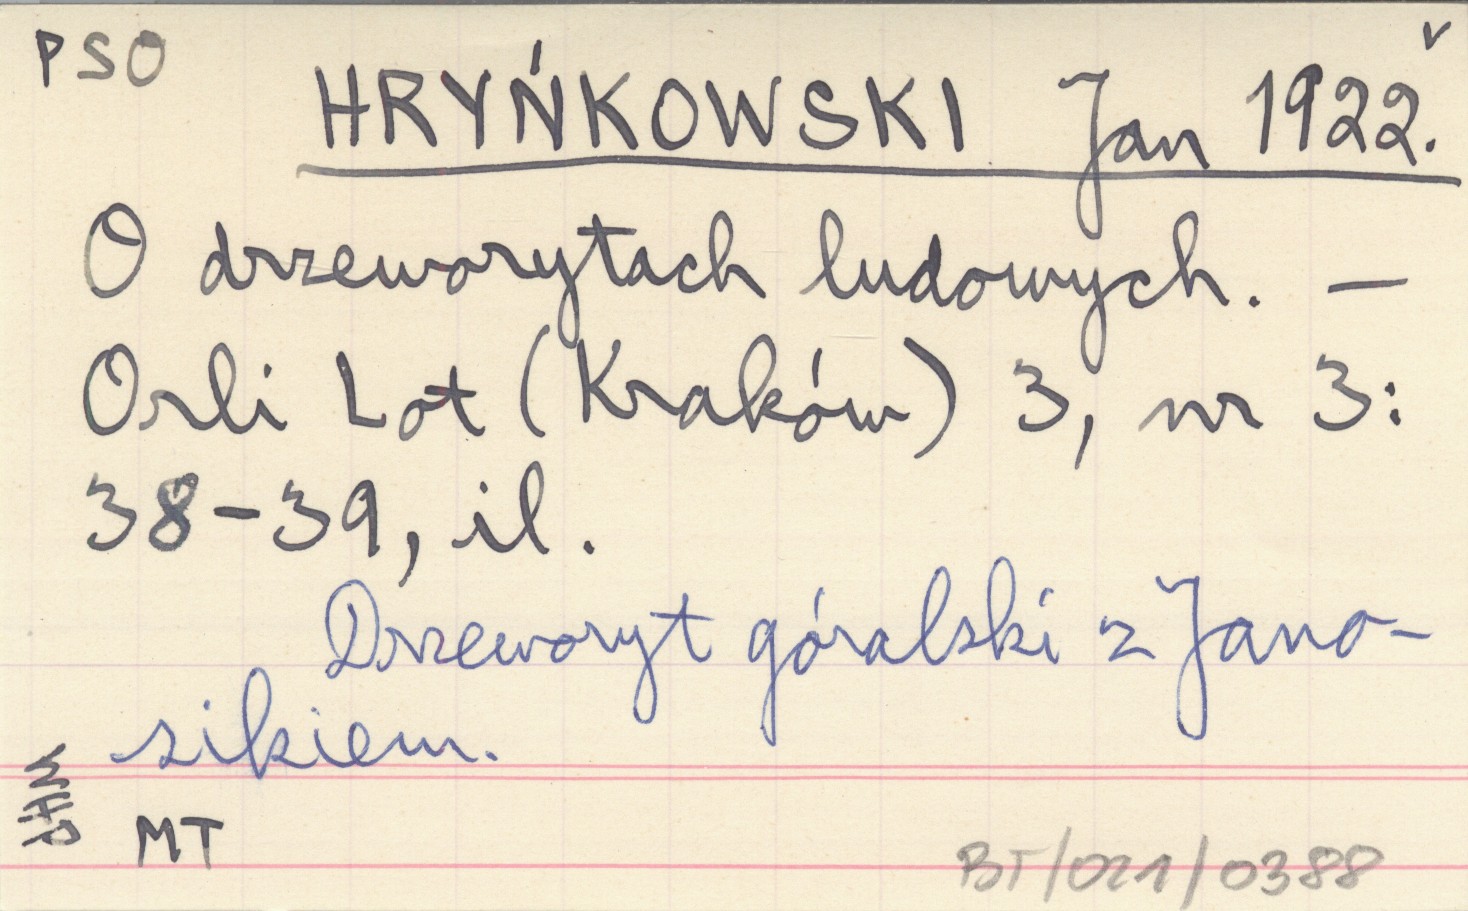 PSO
v
HRYŃKOWSKI Jan 1922.
O drzeworytach ludowych. —
Orli Lot (Kraków) 3, nr 3:
38-39, il.
Drzeworyt góralski z Jano-
sikiem.
MT
BT/021/0388